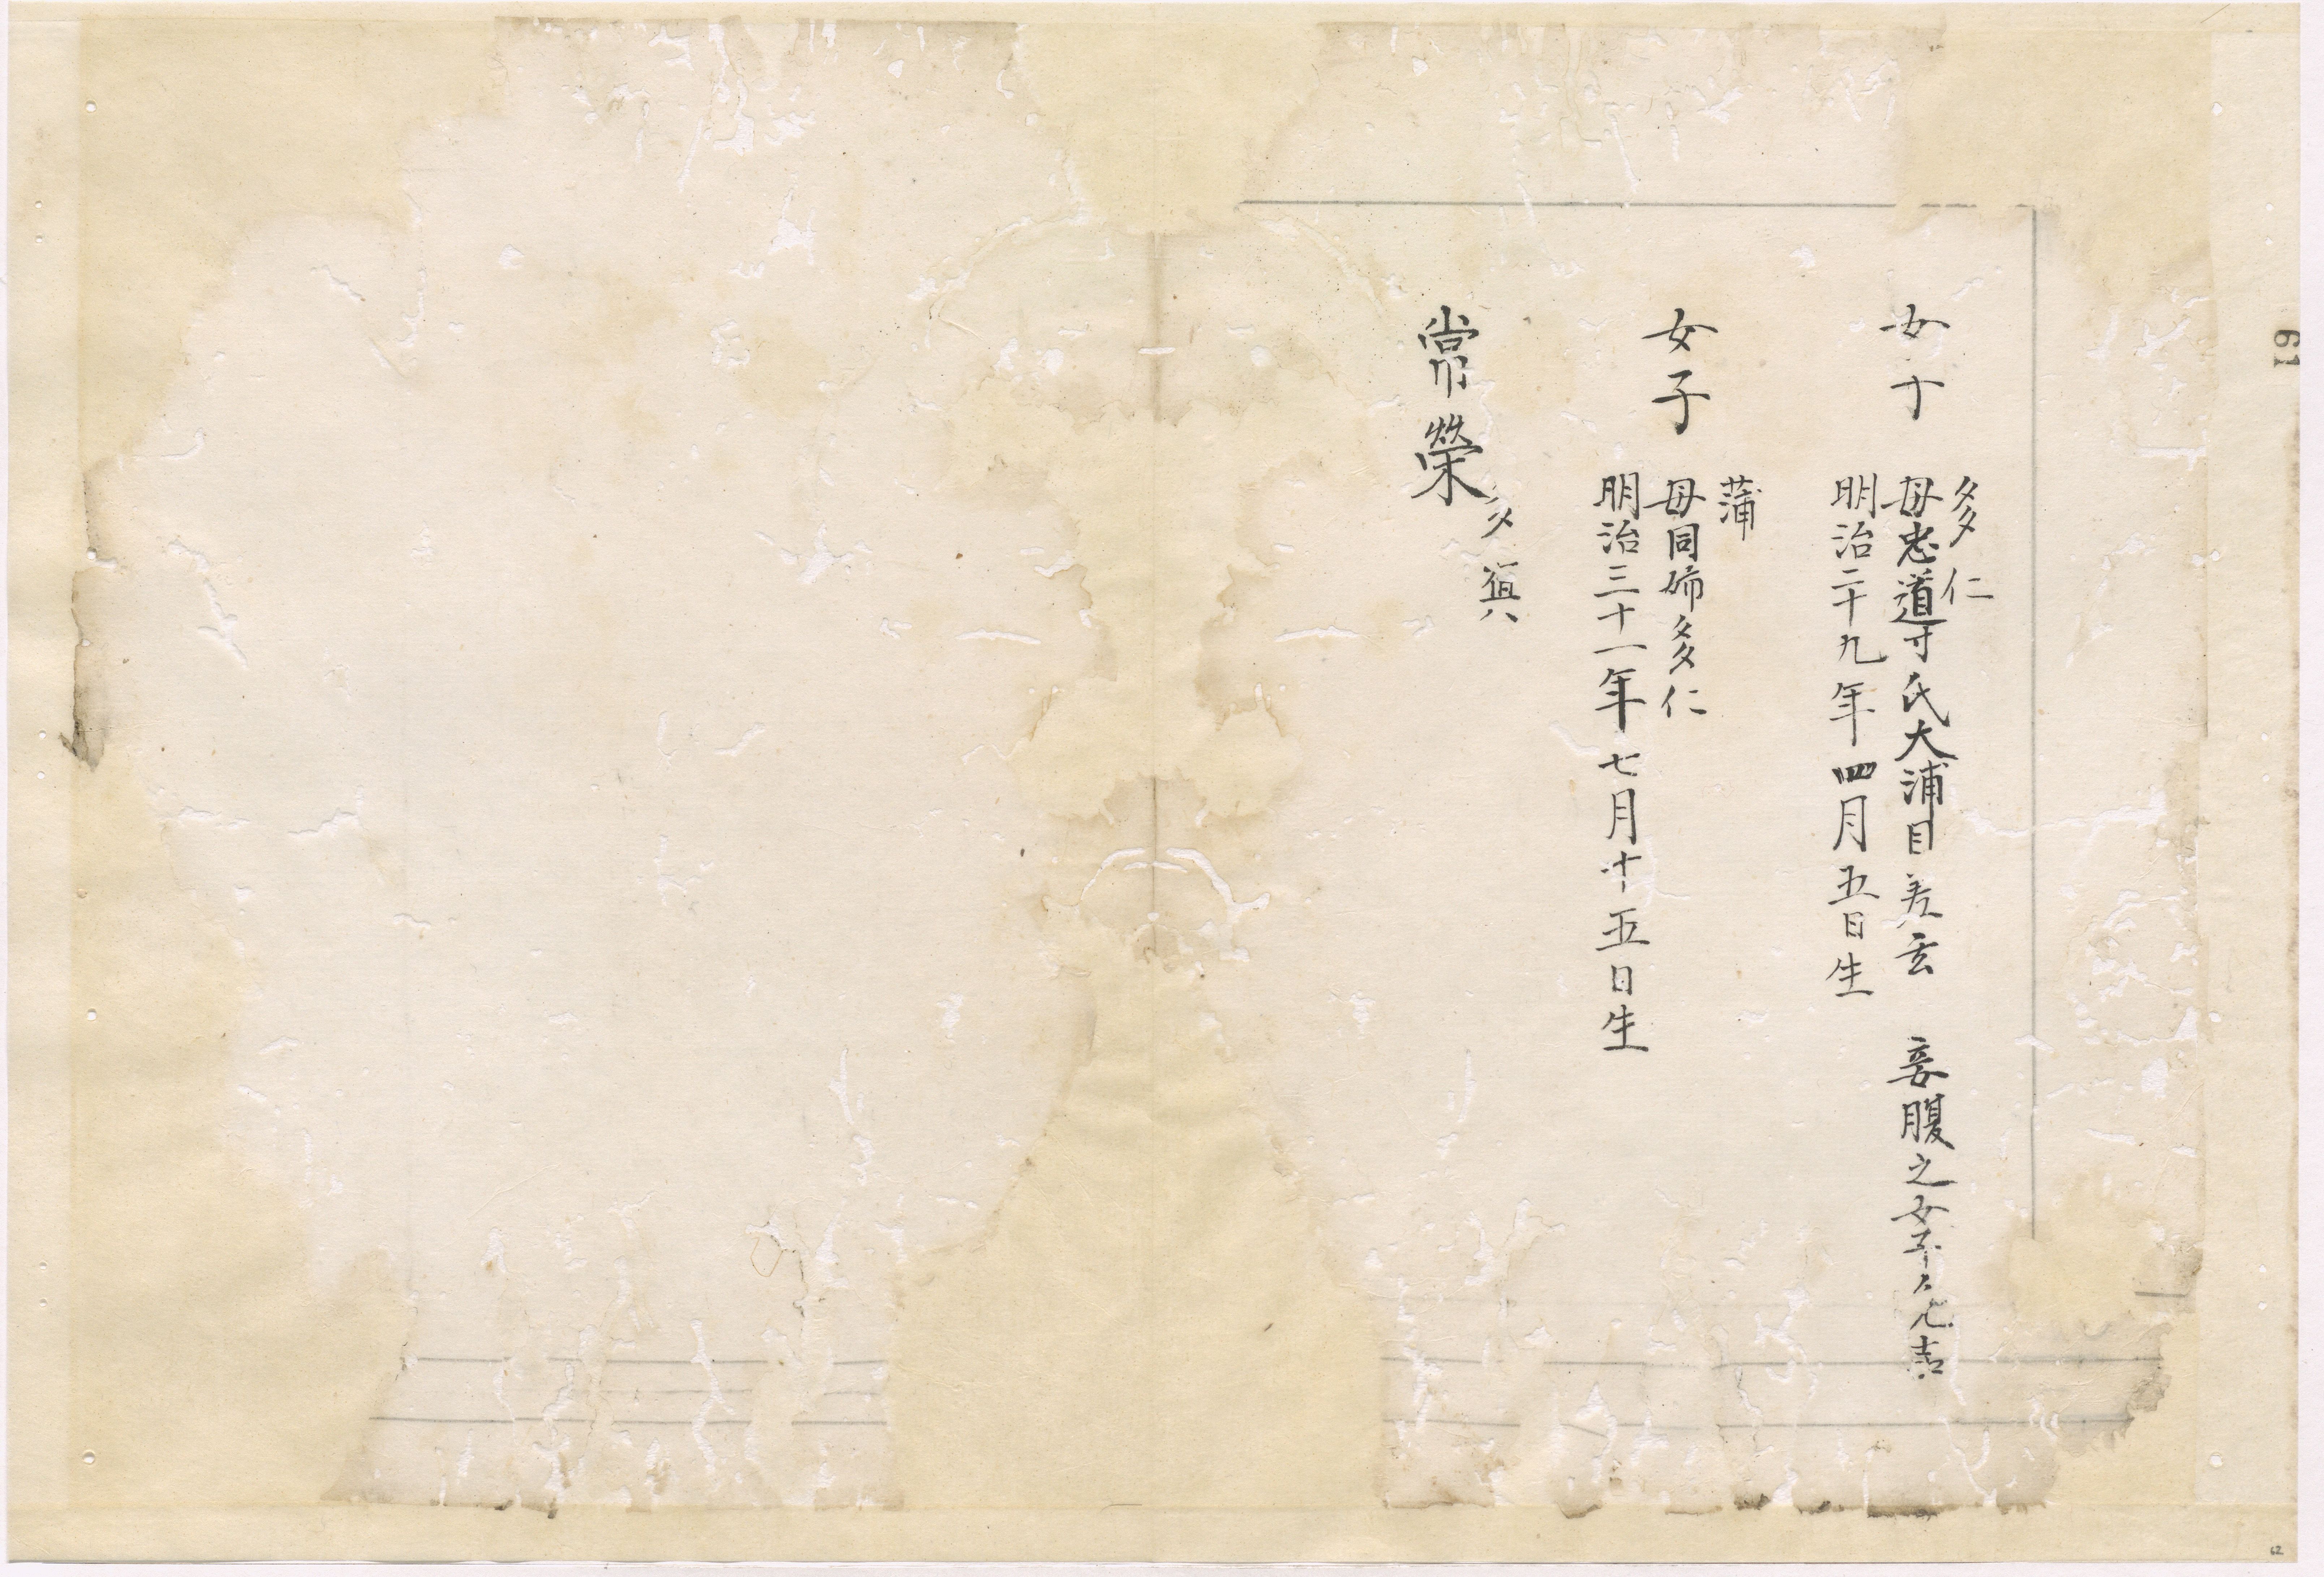 女子
多仁
母忠導氏大浦目差玄 妾腹之女子
明治二十九年四月五日生
女子
蒲
母同姉多仁
明治三十一年七月十五日生
常榮
61
62